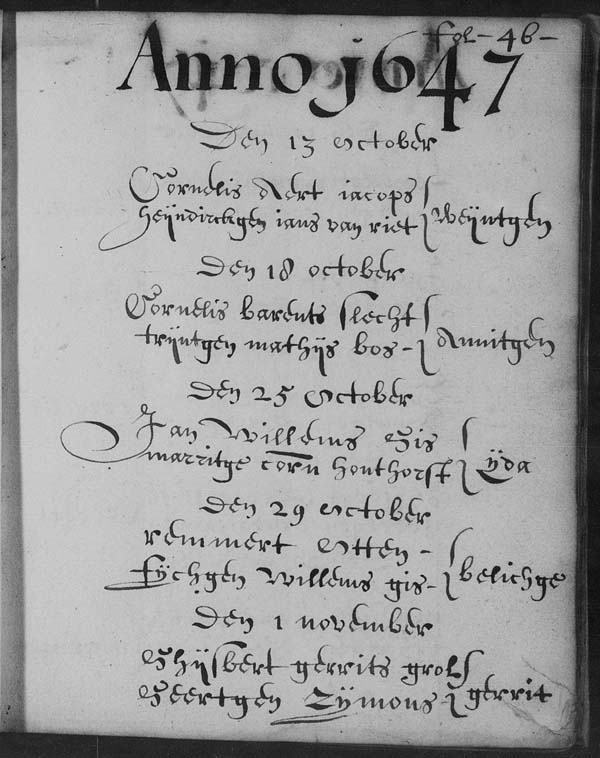 fol-46-
Anno 1647
Den 13 October
Cornelis Aert iacops
heijndirckgen ians van riet } Weijntgen
Den 18 october
Cornelis barents slecht
trijntgen mathijs bos - } Annitgen
Den 25 October
Jan Willems Gis
marritge corn honthorst } ijda
Den 29 October
remmert Otten -
fijchgen Willems gis- } belichge
Den 1 november
Ghijsbert gerrits grol
Geertgen Zijmons } gerrit